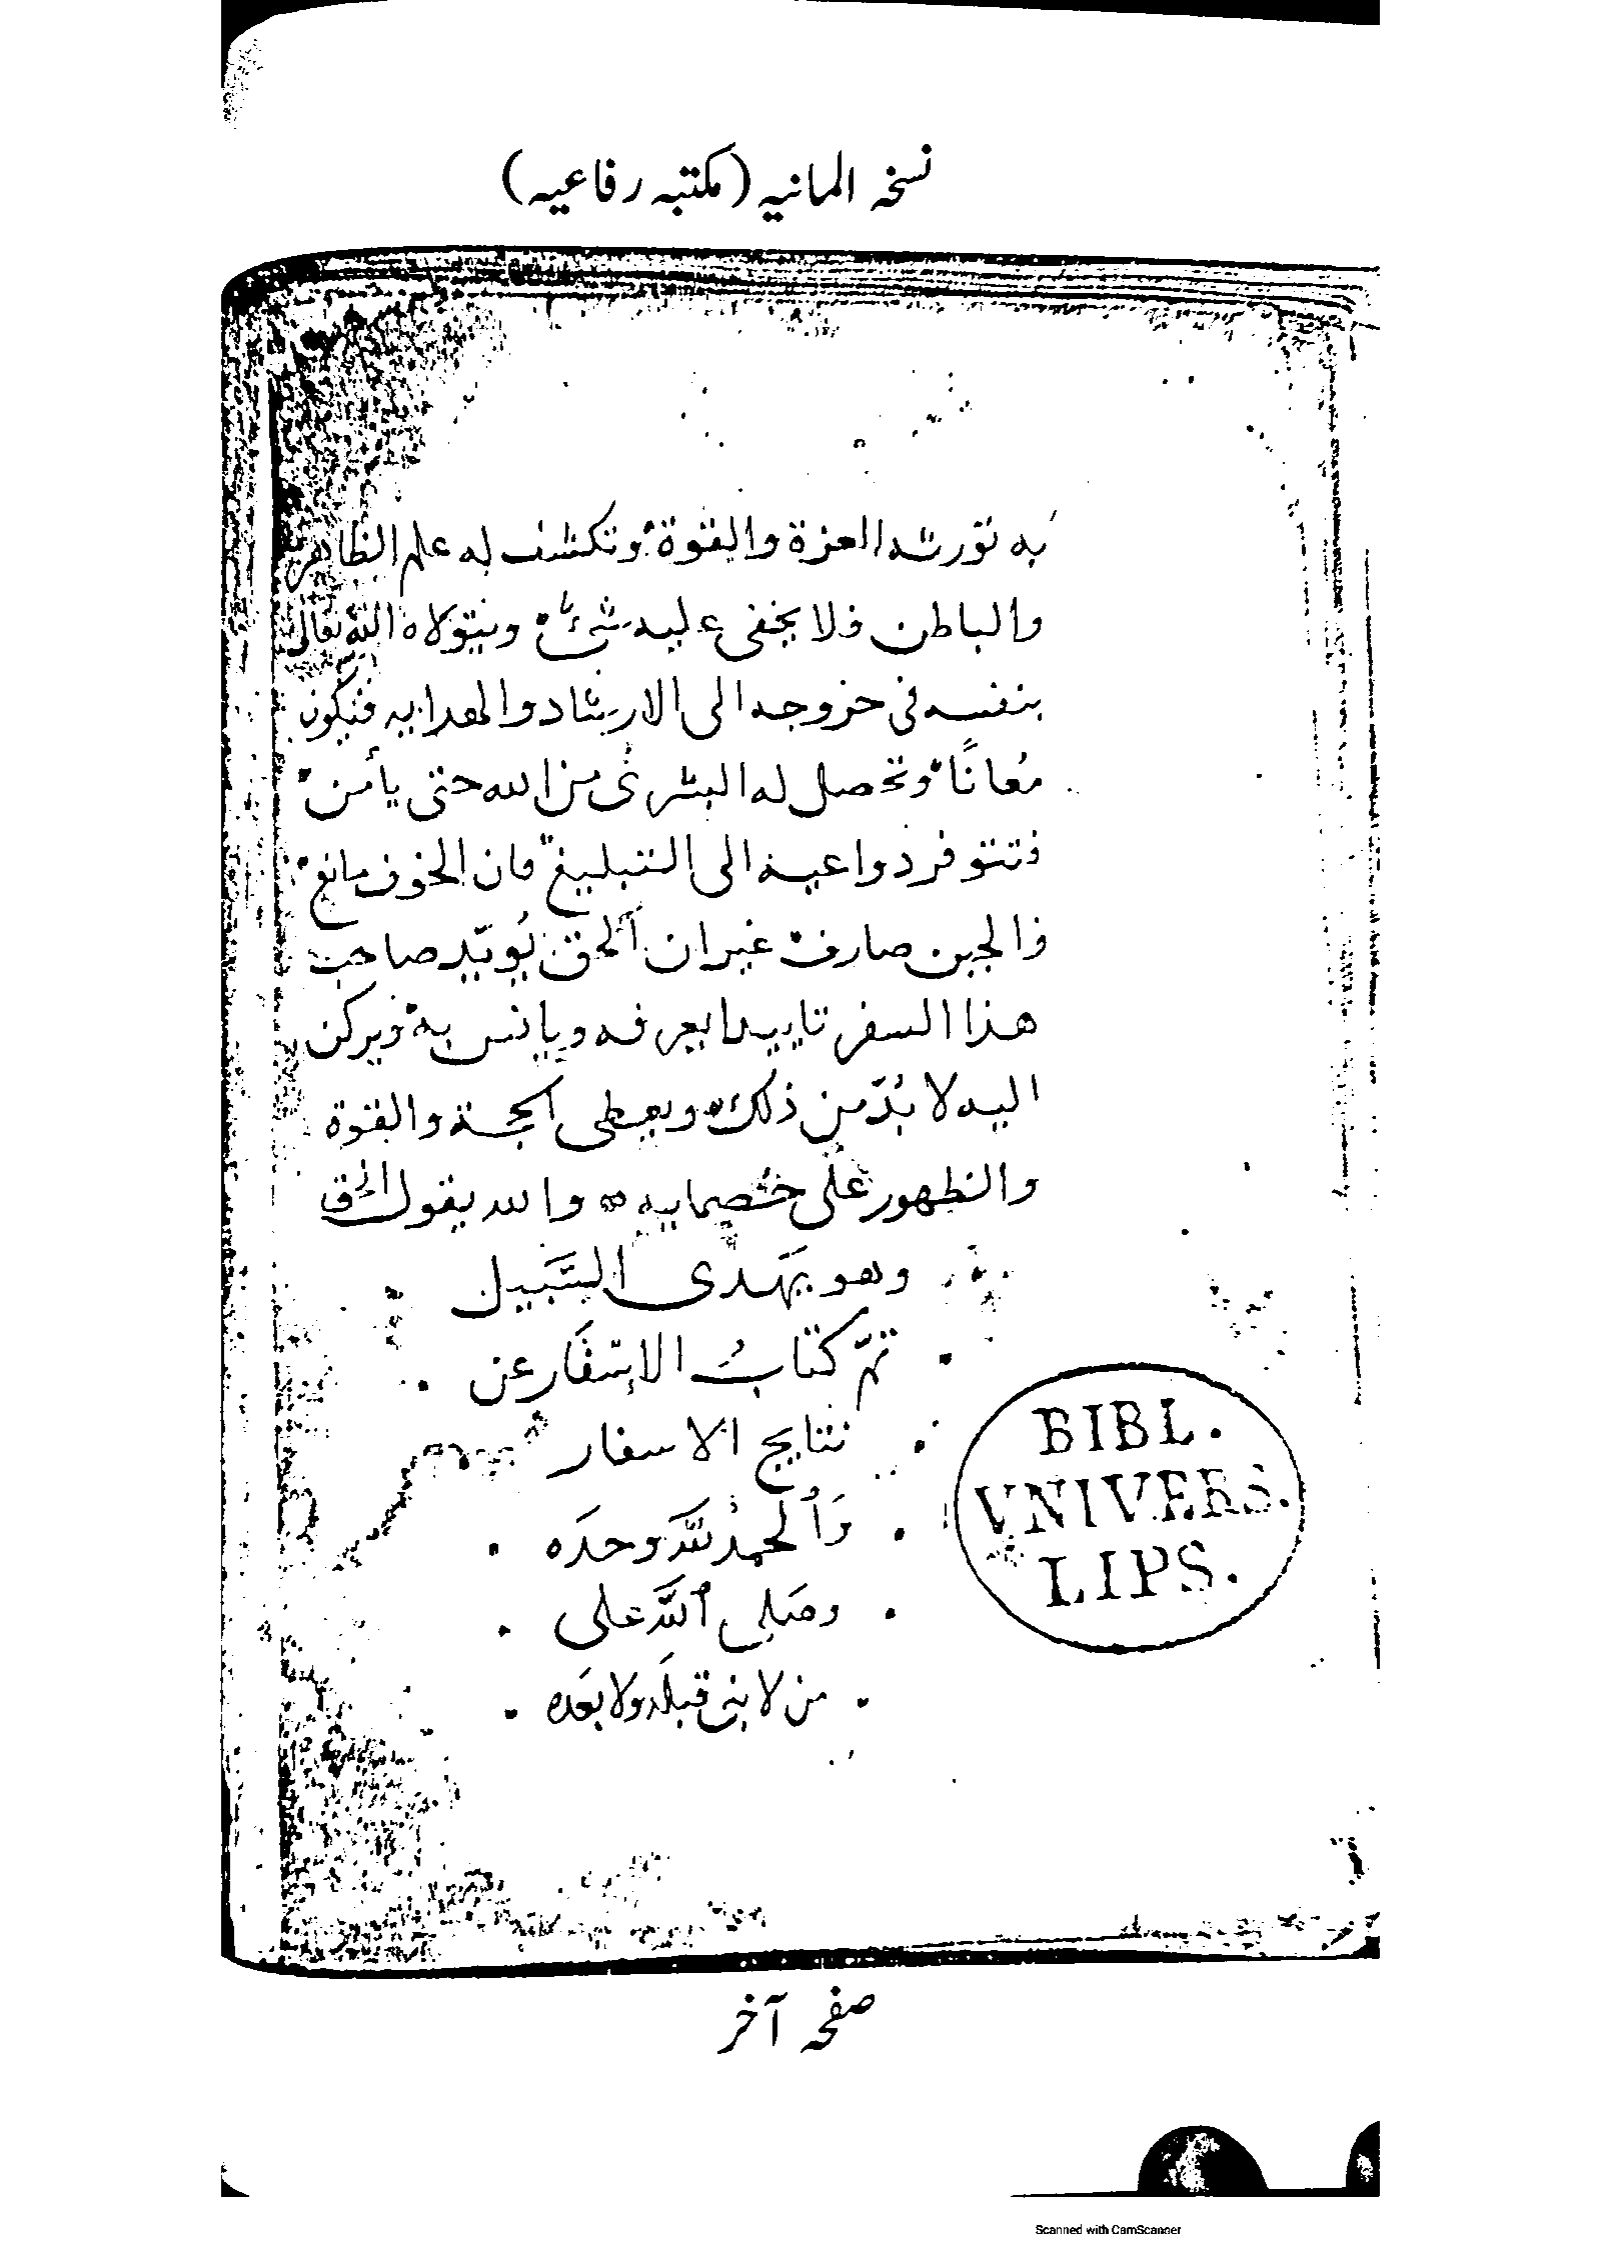 نسخہ المانیہ (مکتبہ رفاعیہ)
به تورثه العزة والقوة وتكشف له علم الظاهر
والباطن فلا يخفى عليه شئ ويتولاه الله تعالى
بنفسه فى خروجه الى الارشاد والهدايه فيكون
مُعانًا وتحصل له البشرى من الله حتى يأمن
فتتوفر دواعيه الى التبليغ فان الخوف مانع
والجبن صارف غير ان ٱلحق يُويّد صاحب
هذا السفر تاييدا يعرفه ويانس به ويركن
اليه لا بُدّ من ذلك ويعطى الحجة والقوة
والظهور على خصمايه والله يقول الحق
وهو يَهَدى السَّبَيل
تمّ كتابُ الإسْفَار عن
نتايج الاسفار
وَٱلحمدُ للَّه وحدَه
وصَلى ٱللَّه على
من لا نبى قبلَه ولا بعَده
BIBL.
VNIVERS.
LIPS.
صفحہ آخر
Scanned with CamScanner